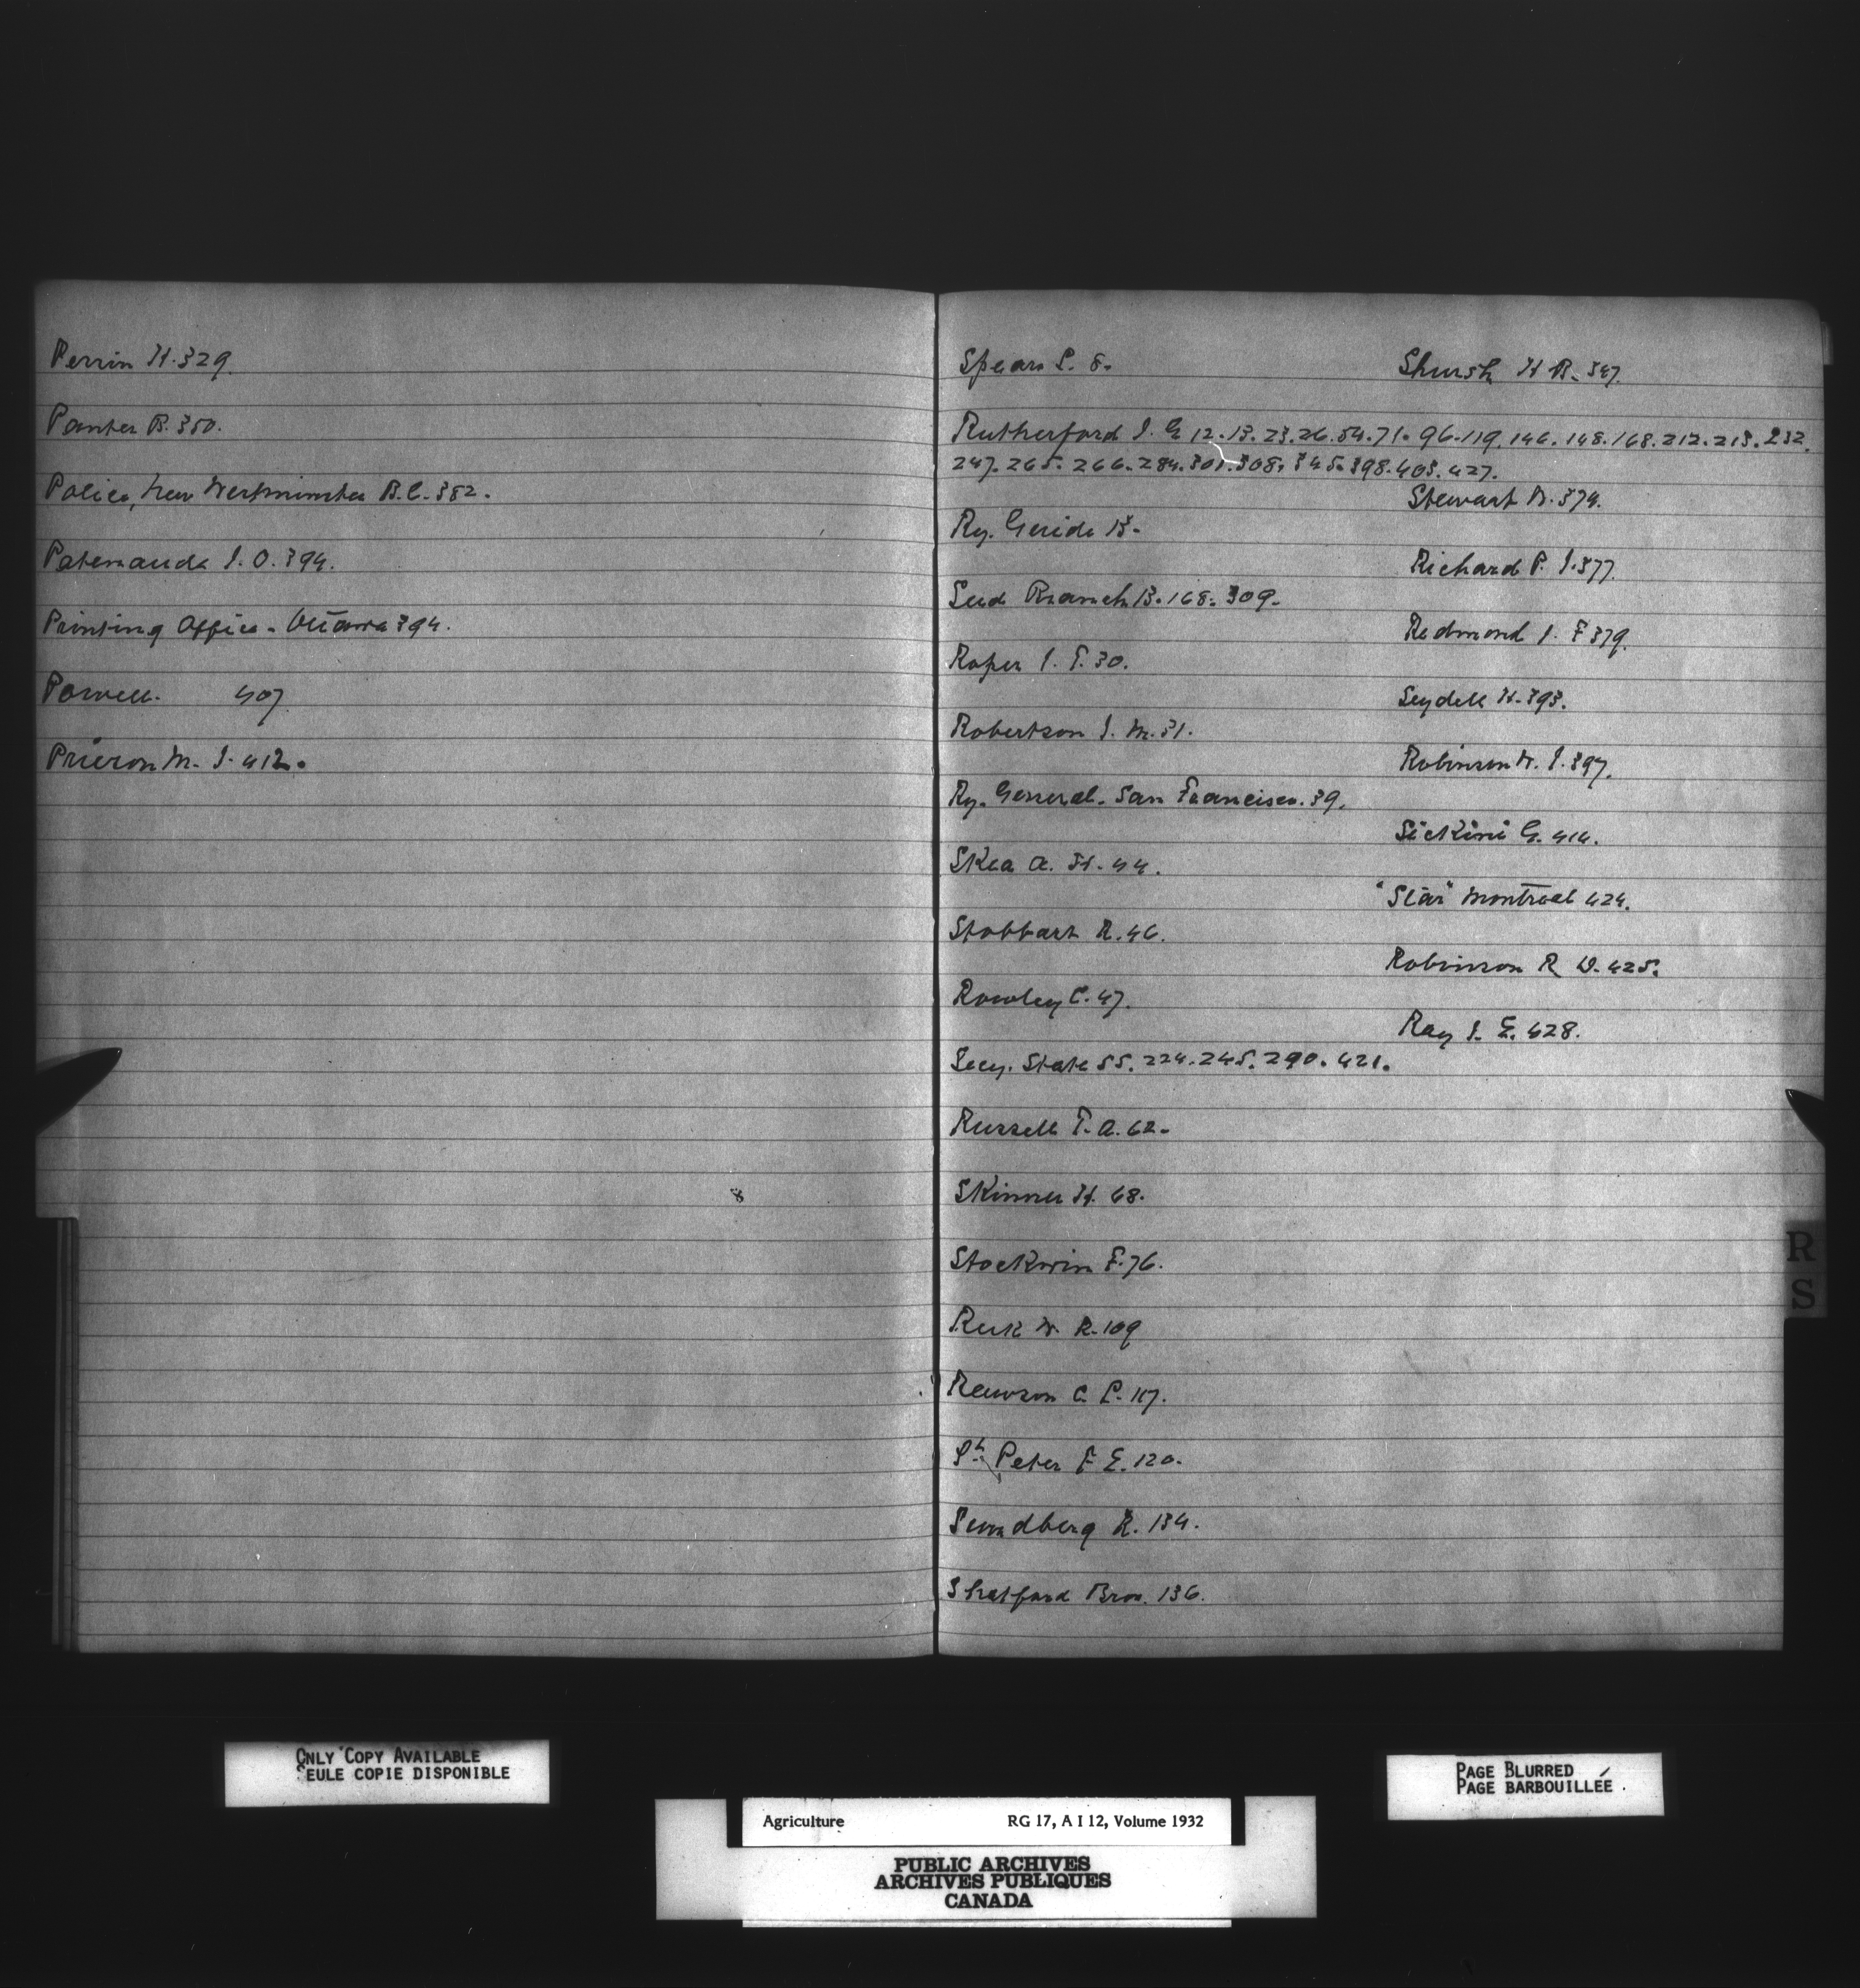 Perrin H. 329.
Panter B. 350.
Police, New Westminster B.C. 382.
Patenaude J. O. 394.
Printing Office - Ottawa 394.
Powell. 407
Prieron M. J. 412.
Spears S. 8.
Shursh H R. 347.
Rutherford J. G 12. 13. 23. 26. 54. 71. 96. 119. 146. 148. 168. 212. 213. 232.
247. 265. 266. 284. 301. 308. 345. 398. 403. 427.
Stewart D. 374.
Ry. Guide 13.
Richard P. J. 377.
Seed Branch 13. 168. 309.
Redmond J. F 379.
Roper J. T. 30.
Seydell H. 393.
Robertson J. M. 31.
Robinson W. J. 397.
Ry. General. San Francisco. 39.
Sickini G. 414.
Skea A. H. 44.
"Star" Montreal 424.
Stobbart R. 46.
Robinson R W. 425.
Rowley C. 47.
Ray J. E. 428.
Secy. State 55. 224. 245. 290. 421.
Russell T. A. 62.
Skinner H. 68.
Stockwin F. 76.
R
S
Rusk W. R. 109
Rawson C P. 117.
St. Peter F E. 120.
Sundberg R. 134.
Shatford Bros. 136.
ONLY COPY AVAILABLE
SEULE COPIE DISPONIBLE
PAGE BLURRED
PAGE BARBOUILLÉE
Agriculture RG 17, A I 12, Volume 1932
PUBLIC ARCHIVES
ARCHIVES PUBLIQUES
CANADA